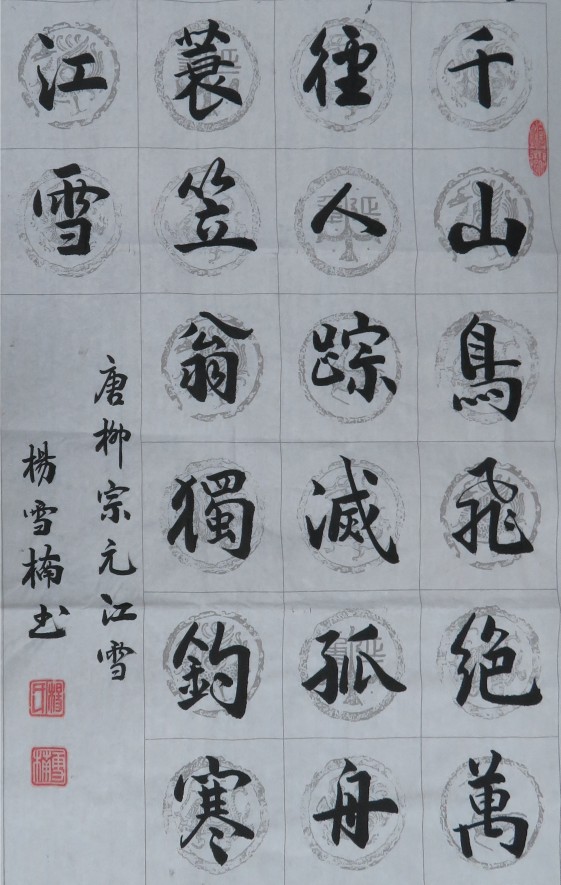 千山鳥飛絶萬
徑人踪滅孤舟
蓑笠翁獨釣寒
江雪
唐柳宗元江雪
楊雪楠书